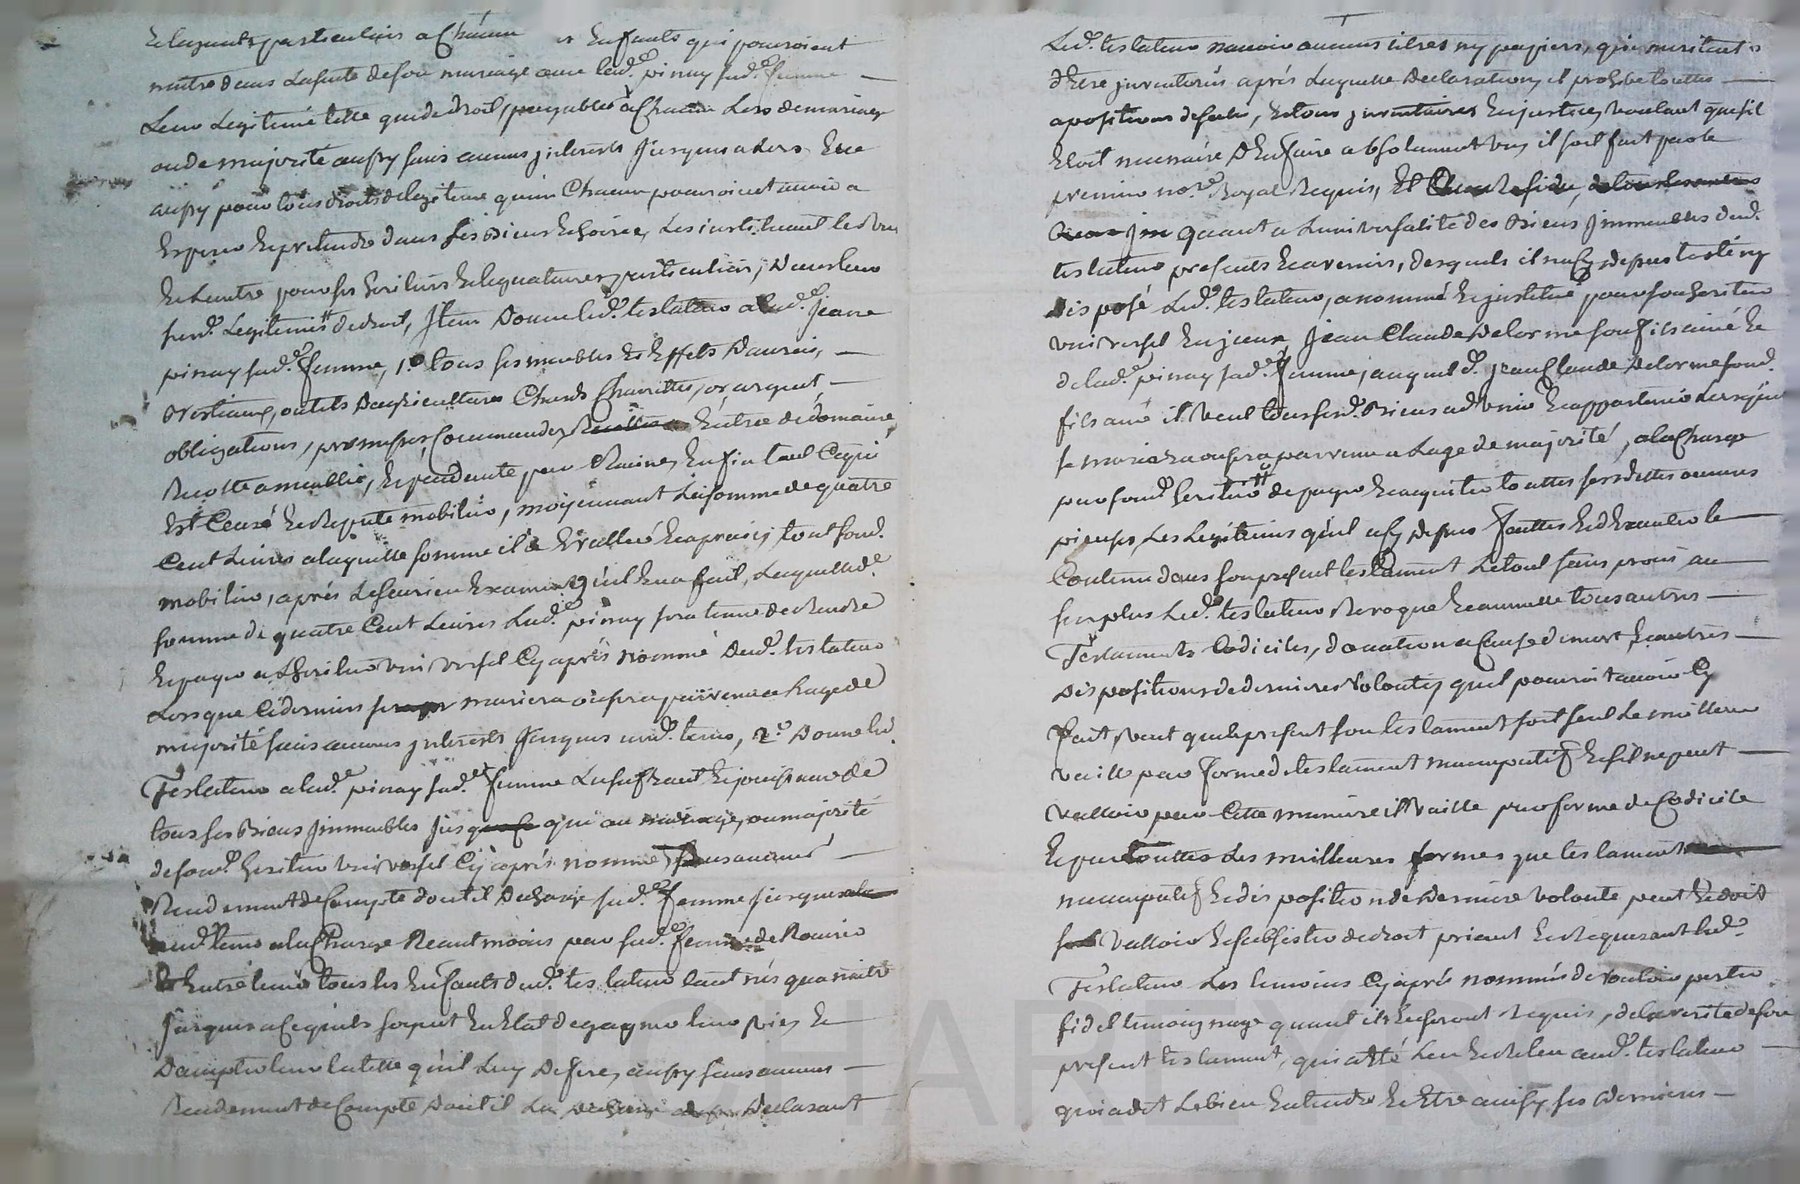 Et legants particuliers a Chacun Enfants qui pouroient
naitre dans La suite de son mariage avec lad.e pinay sad.e femme
Leur Legitime telle que de droit, payable a Chacun Lors de mariage
ou de majorité aussy sans aucuns jnterests Jusques a Lors Et ce
aussy pour tous droits de legitime qu'un Chacun pouroient avoir a
Esperer Et pretendre dans ses Biens Et hoirie, Les instituant les uns
Et Lautre pour ses heritiers Et legataires particuliers, Dans leur
susd. Legitimes de droit, Jtem Donne led. testateur a lad.e Jeane
pinay sad.e femme, 1.o tous ses meubles Et Effets Danrées,
Bestiaux, outils Dagriculture Chards Charrettes, or argent
obligations, promesses Commandes Entrée de domaine,
Recolte ameublie, Et pendente par Racines Enfin tout Ce qui
Est Censé Et Reputé mobilier, moyennant La somme de quatre
Cent Livres a laquelle somme il a Evallué Et apraisé tout sond.
mobilier, aprés Le serieux Examen qu'il En a fait, Laquelle d.e
somme de quatre Cent Livres Lad.e pinay sera tenue de Rendre
Et payer a Lheritier universel Cy aprés nommé Dud. testateur
Lorsque Ce dernier se mariera ou sera parvenu a Lage de
majorité sans aucuns jnterests Jusques aud. tems, 2.o Donne led.
Testateur a lad.e pinay sad.e femme Lusufruit Et jouissance de
tous ses Biens Jmmeubles jusques qu'au mariage, ou majorité
de sond. heritier universel Cy aprés nommé, sans aucune
Rendement de Compte dont il Decharge sad.e femme jusques
aud. tems a la Charge Neant moins par sad.e femme de Nourir
Et Entretenir tous les Enfants dud. testateur tant nés qua naitre
Jusques a Ce quils soyent En Etat de gagner leur vie, Et
Daccepter leur tutelle qu'il Luy Defere, aussy sans aucun
Rendement de Compte Dont il La Decharge Declarant
Led. testateur navoir aucuns titres ny papiers, qui meritent
d'Etre jnventoriés aprés Laquelle Declaration, il prohibe toutte
aposition de scellés, Et tous jnventaires En justice, voulant que s'il
Etoit necessaire D'En faire absolument un, il soit fait par le
premier no.re Royal Requis, Et
quant a Luniversalité des Biens Jmmeubles dud.
testateur presents Et avenir, desquels il n'a Cy depuis testé ny
Disposé Led. testateur, a nommé Et jnstitué pour son heritier
universel Et unique Jean Claude Delorme son fils ainé Et
de lad.e pinay sad.e femme, auquel d. jean Claude Delorme sond.
fils ainé il veut tous sesd. Biens advenir Et appartenir Lorsquil
se mariera ou sera parvenu a Lage de majorité, a la Charge
par sond. heritier de payer Et acquiter touttes ses dettes oeuvres
pieuses, Les Legitimes qu'il a Cy depuis faittes Et d'Executer le
Contenu dans son present testament Le tout sans procés au
surplus Led. testateur Revoque Et annulle tous autres
Testaments Codiciles, donation a Cause de mort Et autres
Dispositions de derniere volonté, quil pouroit avoir Cy
fait, veut que le present son testament soit seul Le meilleur
vaille par forme de testament nuncupatif Et s'il ne peut
valloir par Cette maniere il vaille par forme de Codicile
Et par touttes Les meilleures formes que testament
nuncupatif Et disposition de Derniere volonté peut Et doit
valloir Et subsister de droit priant Et Requerant led.
Testateur Les temoins Cy aprés nommés de vouloir porter
fidel temoignage quant ils En seront Requis, de la verité de son
present testament, qui a été Leu Et Releu aud. testateur
qui a dit Le bien Entendre Et Etre ainsy ses Dernieres
CHAREYRON